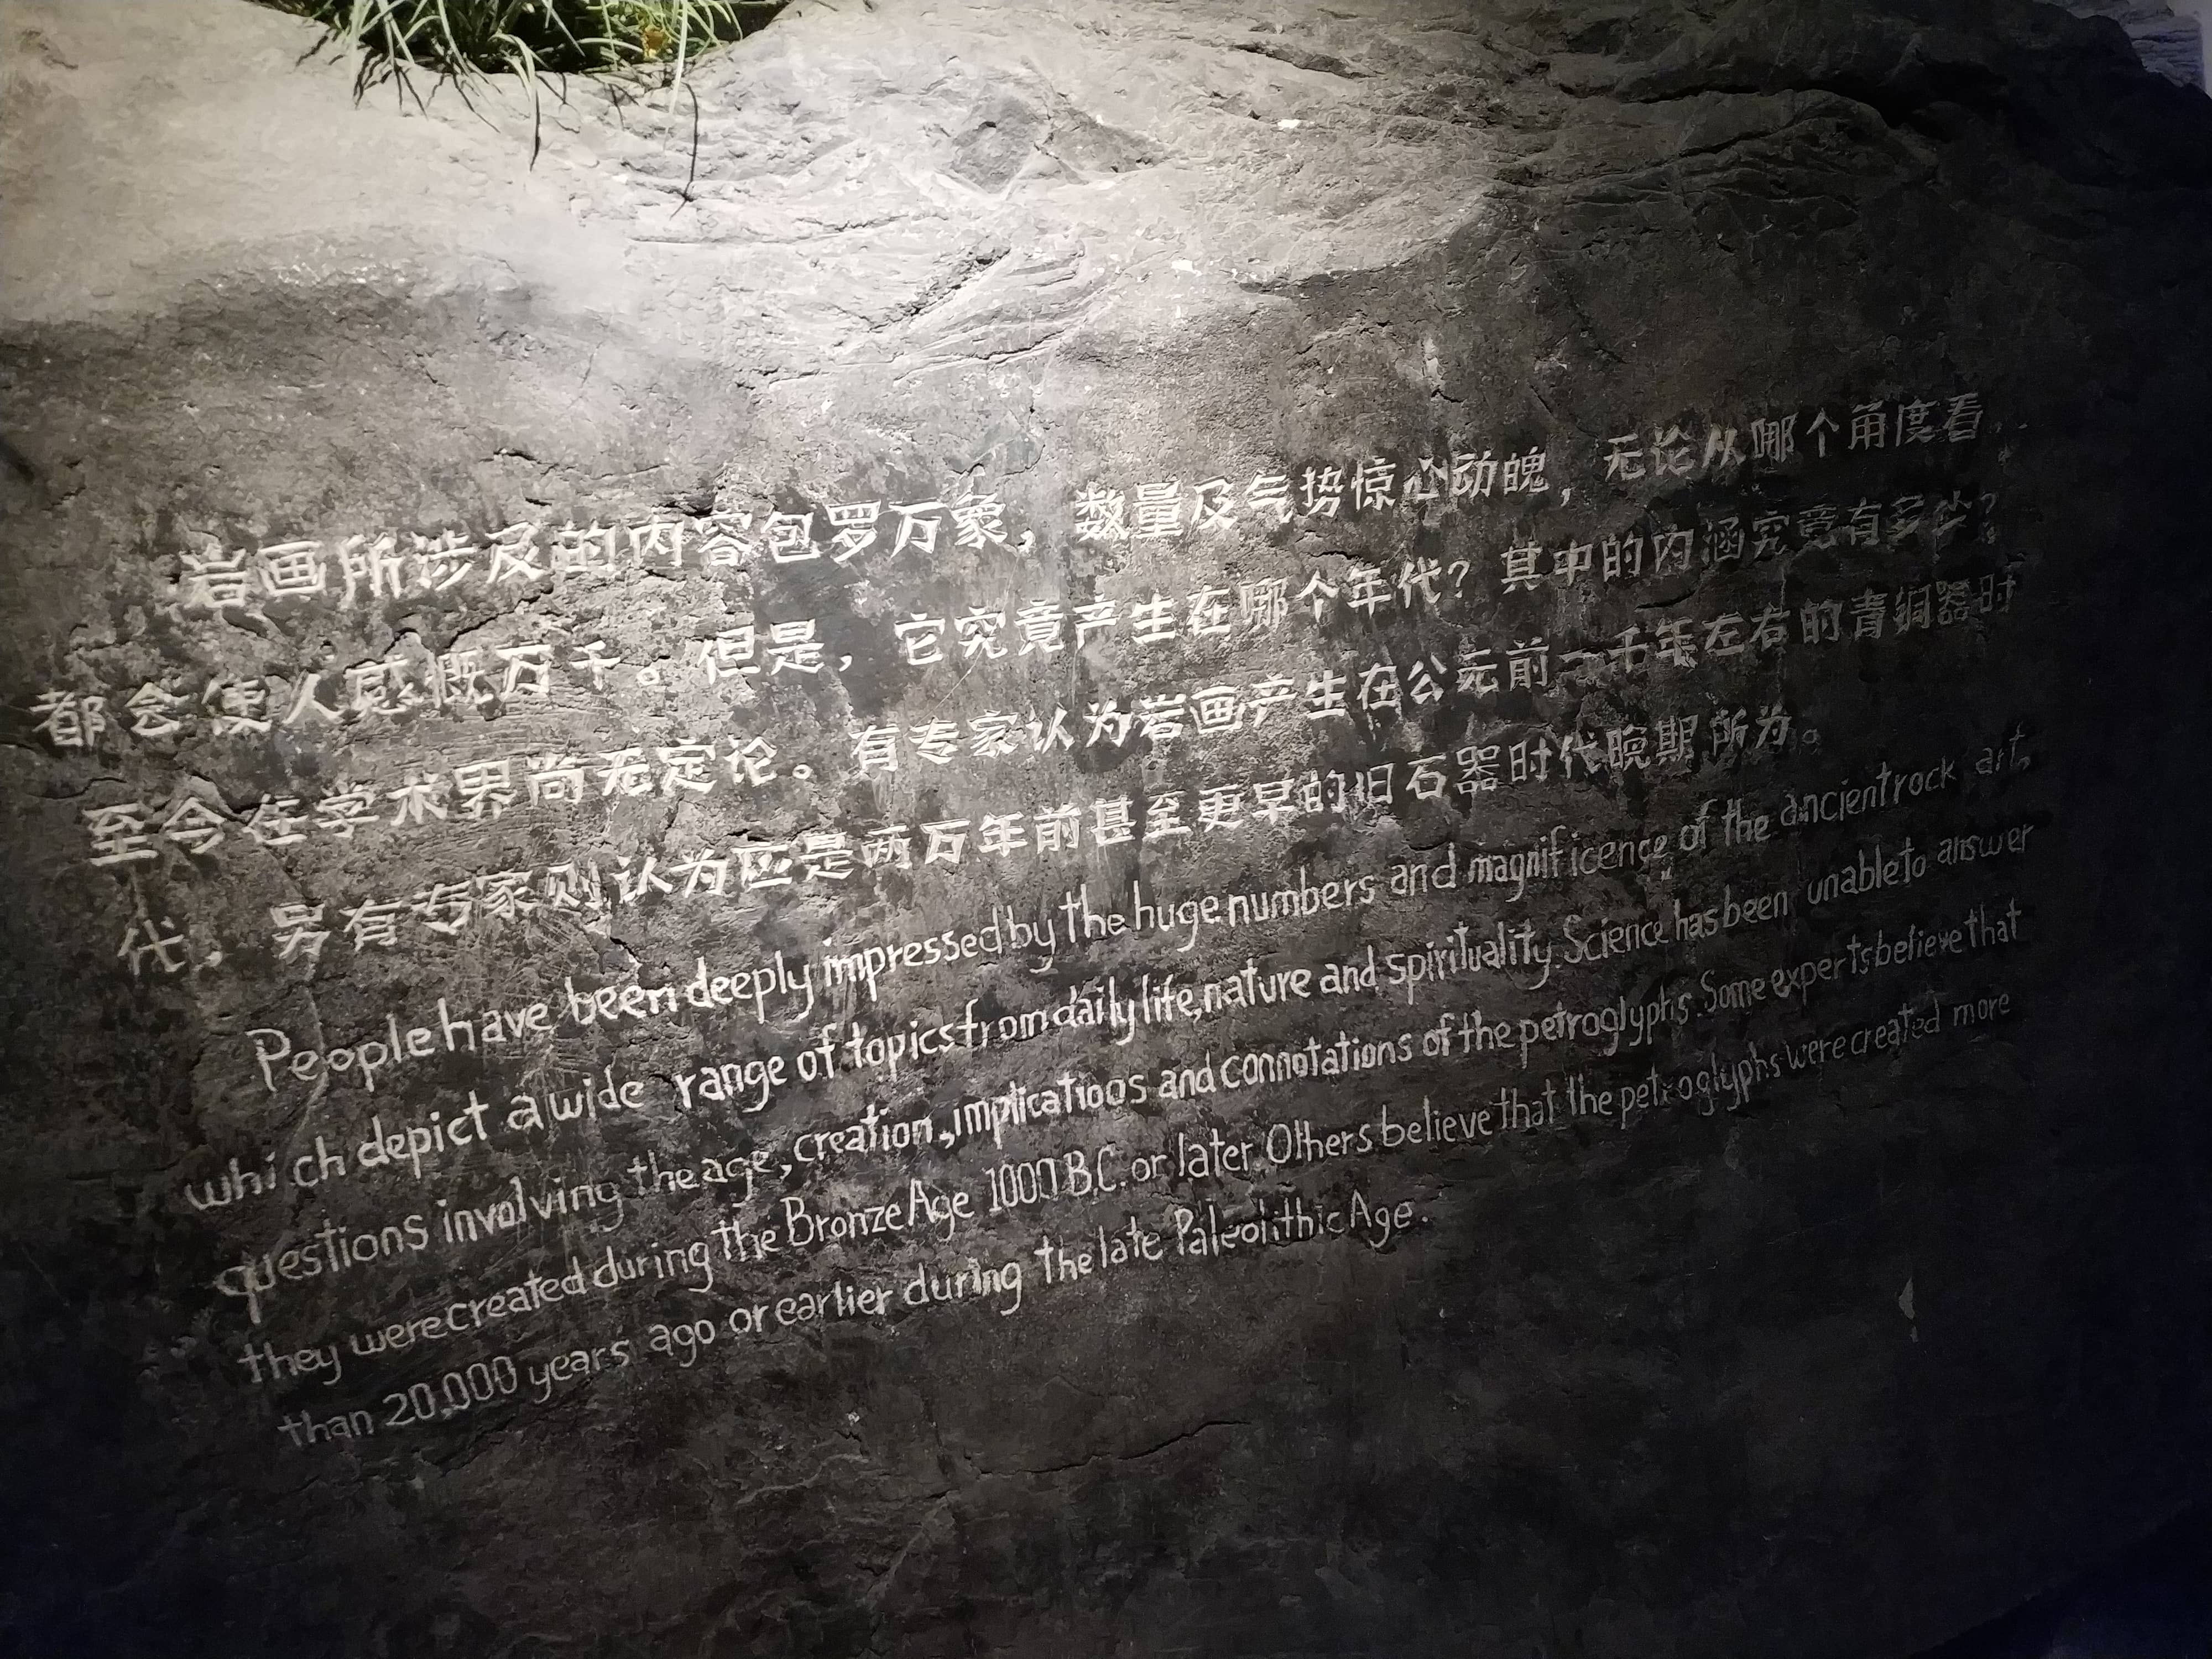 岩画所涉及的内容包罗万象，数量及气势惊心动魄，无论从哪个角度看
都会使人感慨万千。但是，它究竟产生在哪个年代？其中的内涵究竟有多少？
至今在学术界尚无定论。有专家认为岩画产生在公元前一千年左右的青铜器时
代，另有专家则认为应是两万年前甚至更早的旧石器时代晚期所为。
People have been deeply impressed by the huge numbers and magnificence of the ancient rock art,
which depict a wide range of topics from daily life, nature and spirituality. Science has been unable to answer
questions involving the age, creation, implicatioos and connotations of the petroglyphs. Some experts believe that
they were created during the Bronze Age 1000 B.C. or later. Others believe that the petroglyphs were created more
than 20,000 years ago or earlier during the late Paleolithic Age.